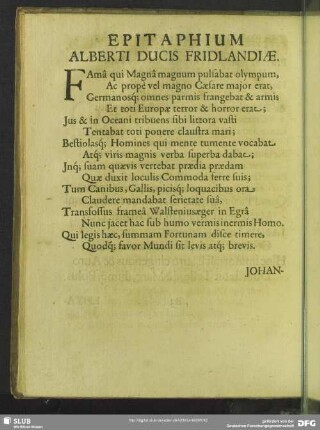 EPITAPHIUM
ALBERTI DUCIS FRIDLANDIÆ.
FAmâ qui Magnâ magnum pulsabat olympum,
Ac propè vel magno Cæsare major erat,
Germanosq; omnes parmis frangebat & armis
Et toti Europæ terror & horror erat;
Jus & in Oceani tribuens sibi littora vasti
Tentabat toti ponere claustra mari;
Bestiolasq; Homines qui mente tumente vocabat
Atq; viris magnis verba superba dabat;
Inq; suam quævis vertebat prædia prædam
Quæ duxit loculis Commoda ferre suis;
Tum Canibus, Gallis, picisq; loquacibus ora
Claudere mandabat serietate suâ,
Transfossus frameâ Walsteniusæger in Egrâ
Nunc jacet hac sub humo vermis inermis Homo.
Qui legis hæc, summam Fortunam disce timere,
Quodq; favor Mundi sit levis atq; brevis.
JOHAN-
SLUB
Wir führen Wissen.
gefördert von der
Deutschen Forschungsgemeinschaft
DFG